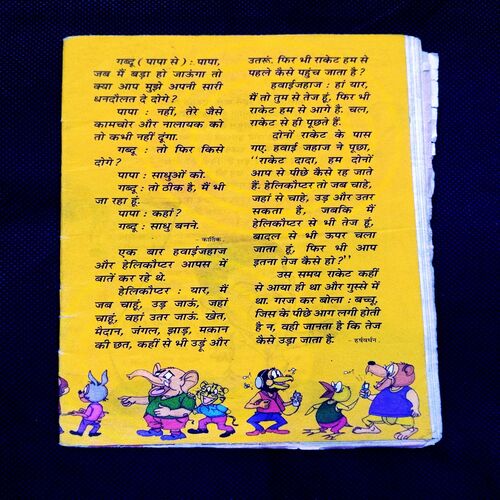 गब्दू ( पापा से ) : पापा,
जब मैं बड़ा हो जाऊंगा तो
क्या आप मुझे अपनी सारी
धनदौलत दे दोगे?
पापा : नहीं, तेरे जैसे
कामचोर और नालायक को
तो कभी नहीं दूंगा.
गब्दू : तो फिर किसे
दोगे?
पापा : साधुओं को.
गब्दू : तो ठीक है, मैं भी
जा रहा हूं.
पापा : कहां?
गब्दू : साधु बनने.
- कार्तिक.
एक बार हवाईजहाज
और हेलिकौप्टर आपस में
बातें कर रहे थे.
हेलिकौप्टर : यार, मैं
जब चाहूं, उड़ जाऊं, जहां
चाहूं, वहां उतर जाऊं. खेत,
मैदान, जंगल, झाड़, मकान
की छत, कहीं से भी उड़ूं और
उतरूं. फिर भी राकेट हम से
पहले कैसे पहुंच जाता है?
हवाईजहाज : हां यार,
मैं तो तुम से तेज हूं, फिर भी
राकेट हम से आगे है. चल,
राकेट से ही पूछते हैं.
दोनों राकेट के पास
गए. हवाई जहाज ने पूछा,
“राकेट दादा, हम दोनों
आप से पीछे कैसे रह जाते
हैं. हेलिकौप्टर तो जब चाहे,
जहां से चाहे, उड़ और उतर
सकता है, जबकि मैं
हेलिकौप्टर से भी तेज हूं,
बादल से भी ऊपर चला
जाता हूं, फिर भी आप
इतना तेज कैसे हो?”
उस समय राकेट कहीं
से आया ही था और गुस्से में
था. गरज कर बोला : बच्चू,
जिस के पीछे आग लगी होती
है न, वही जानता है कि तेज
कैसे उड़ा जाता है. - हर्षवर्धन.